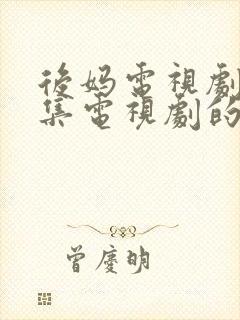 後妈電視劇
集電視劇的
曾慶明